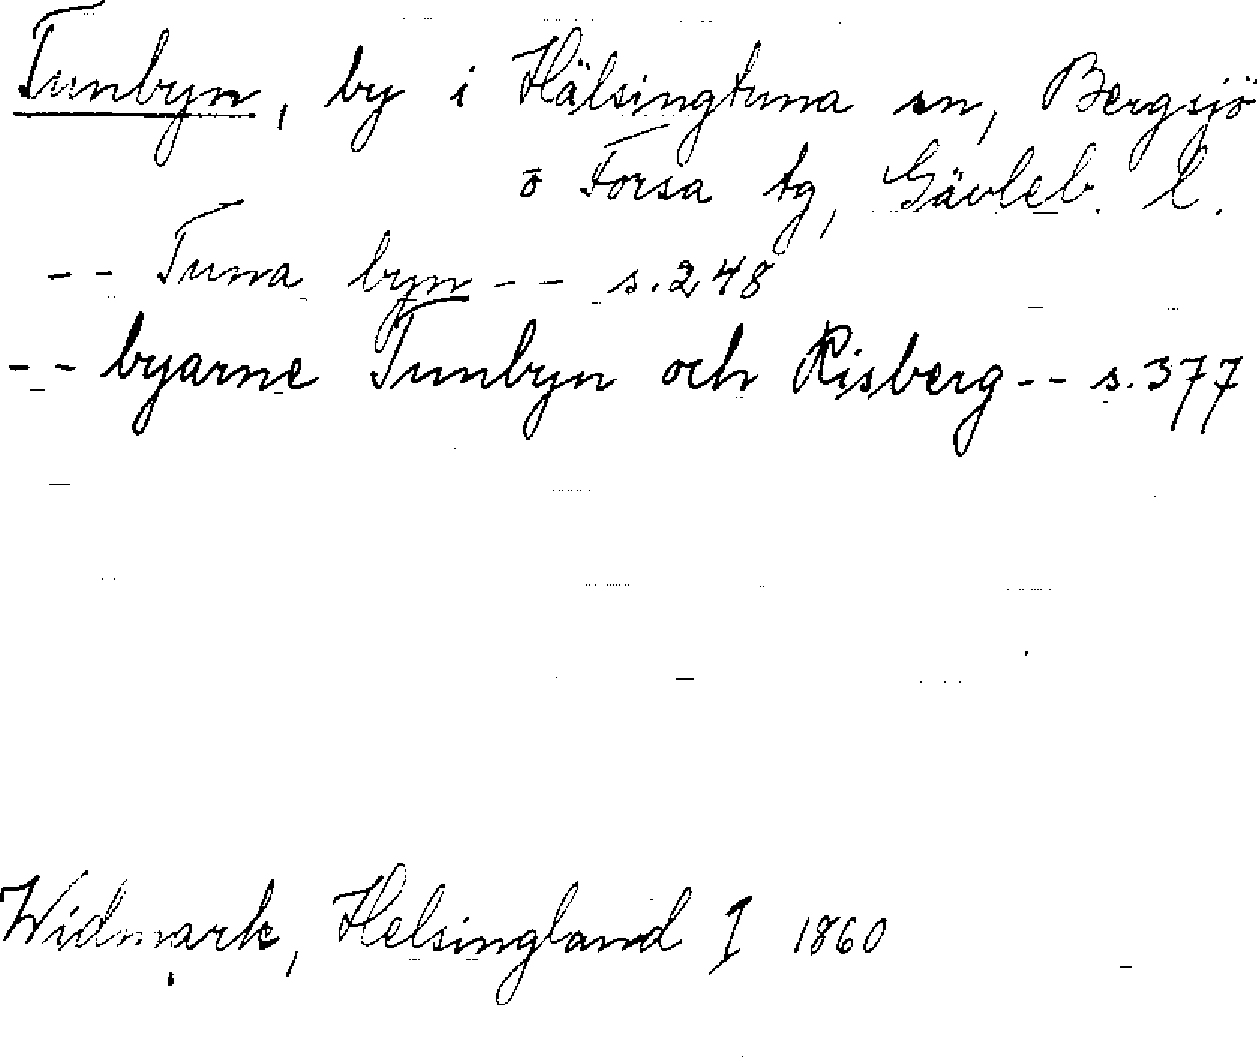 Tunbyn, by i Hälsingtuna sn, Bergsjö
o Forsa tg, Gävleb. l.
-- Tuna byn -- s. 248
-- byarne Tunbyn och Risberg -- s. 377
Widmark, Helsingland I 1860